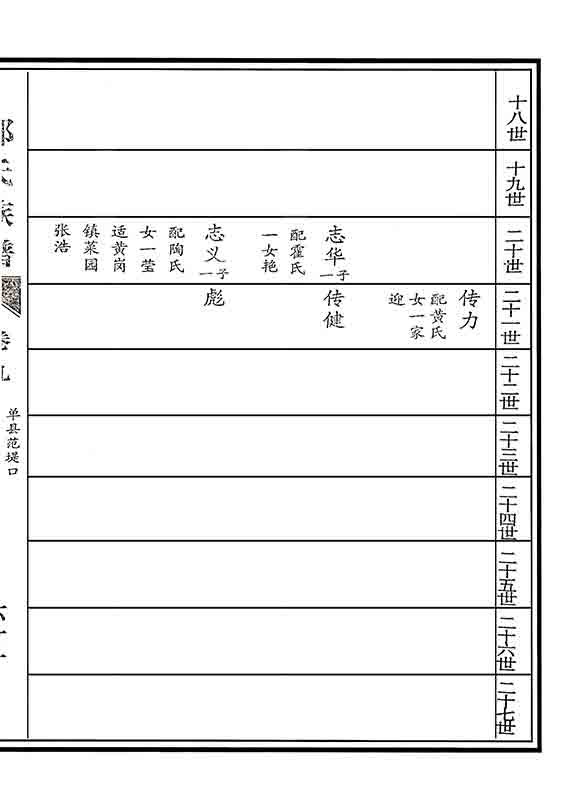 十八世
十九世
二十世
志华
一子
配霍氏
一女艳
志义
一子
配陶氏
女一莹
适黄岗
镇菜园
张浩
二十一世
传力
配黄氏
女一家
迎
传健
彪
二十二世
二十三世
二十四世
二十五世
二十六世
二十七世
氏族谱
卷九
单县范堤口